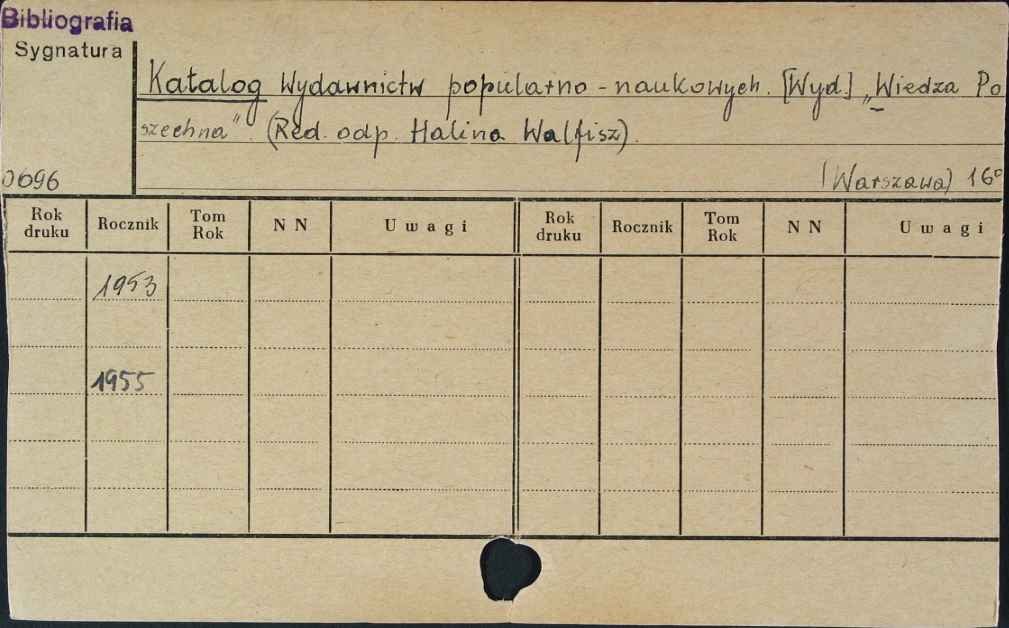 Bibliografia
Sygnatura
Katalog wydawnictw popularno-naukowych. [Wyd.] „Wiedza Po
szechna". (Red. odp. Halina Walfisz).
0696
(Warszawa) 16°
Rok druku Rocznik Tom Rok N N Uwagi Rok druku Rocznik Tom Rok N N Uwagi
1953
1955